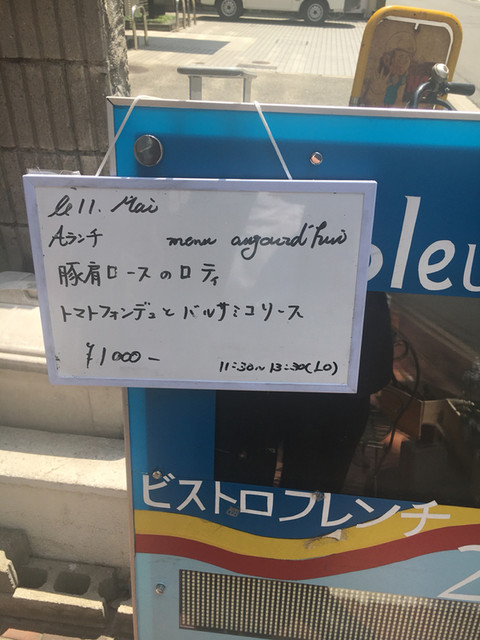 le 11. Mai
Aランチ menu aujourd'hui
豚肩ロースのロティ
トマトフォンデュとバルサミコソース
¥1000-
11:30~13:30(LO)
ビストロフレンチ